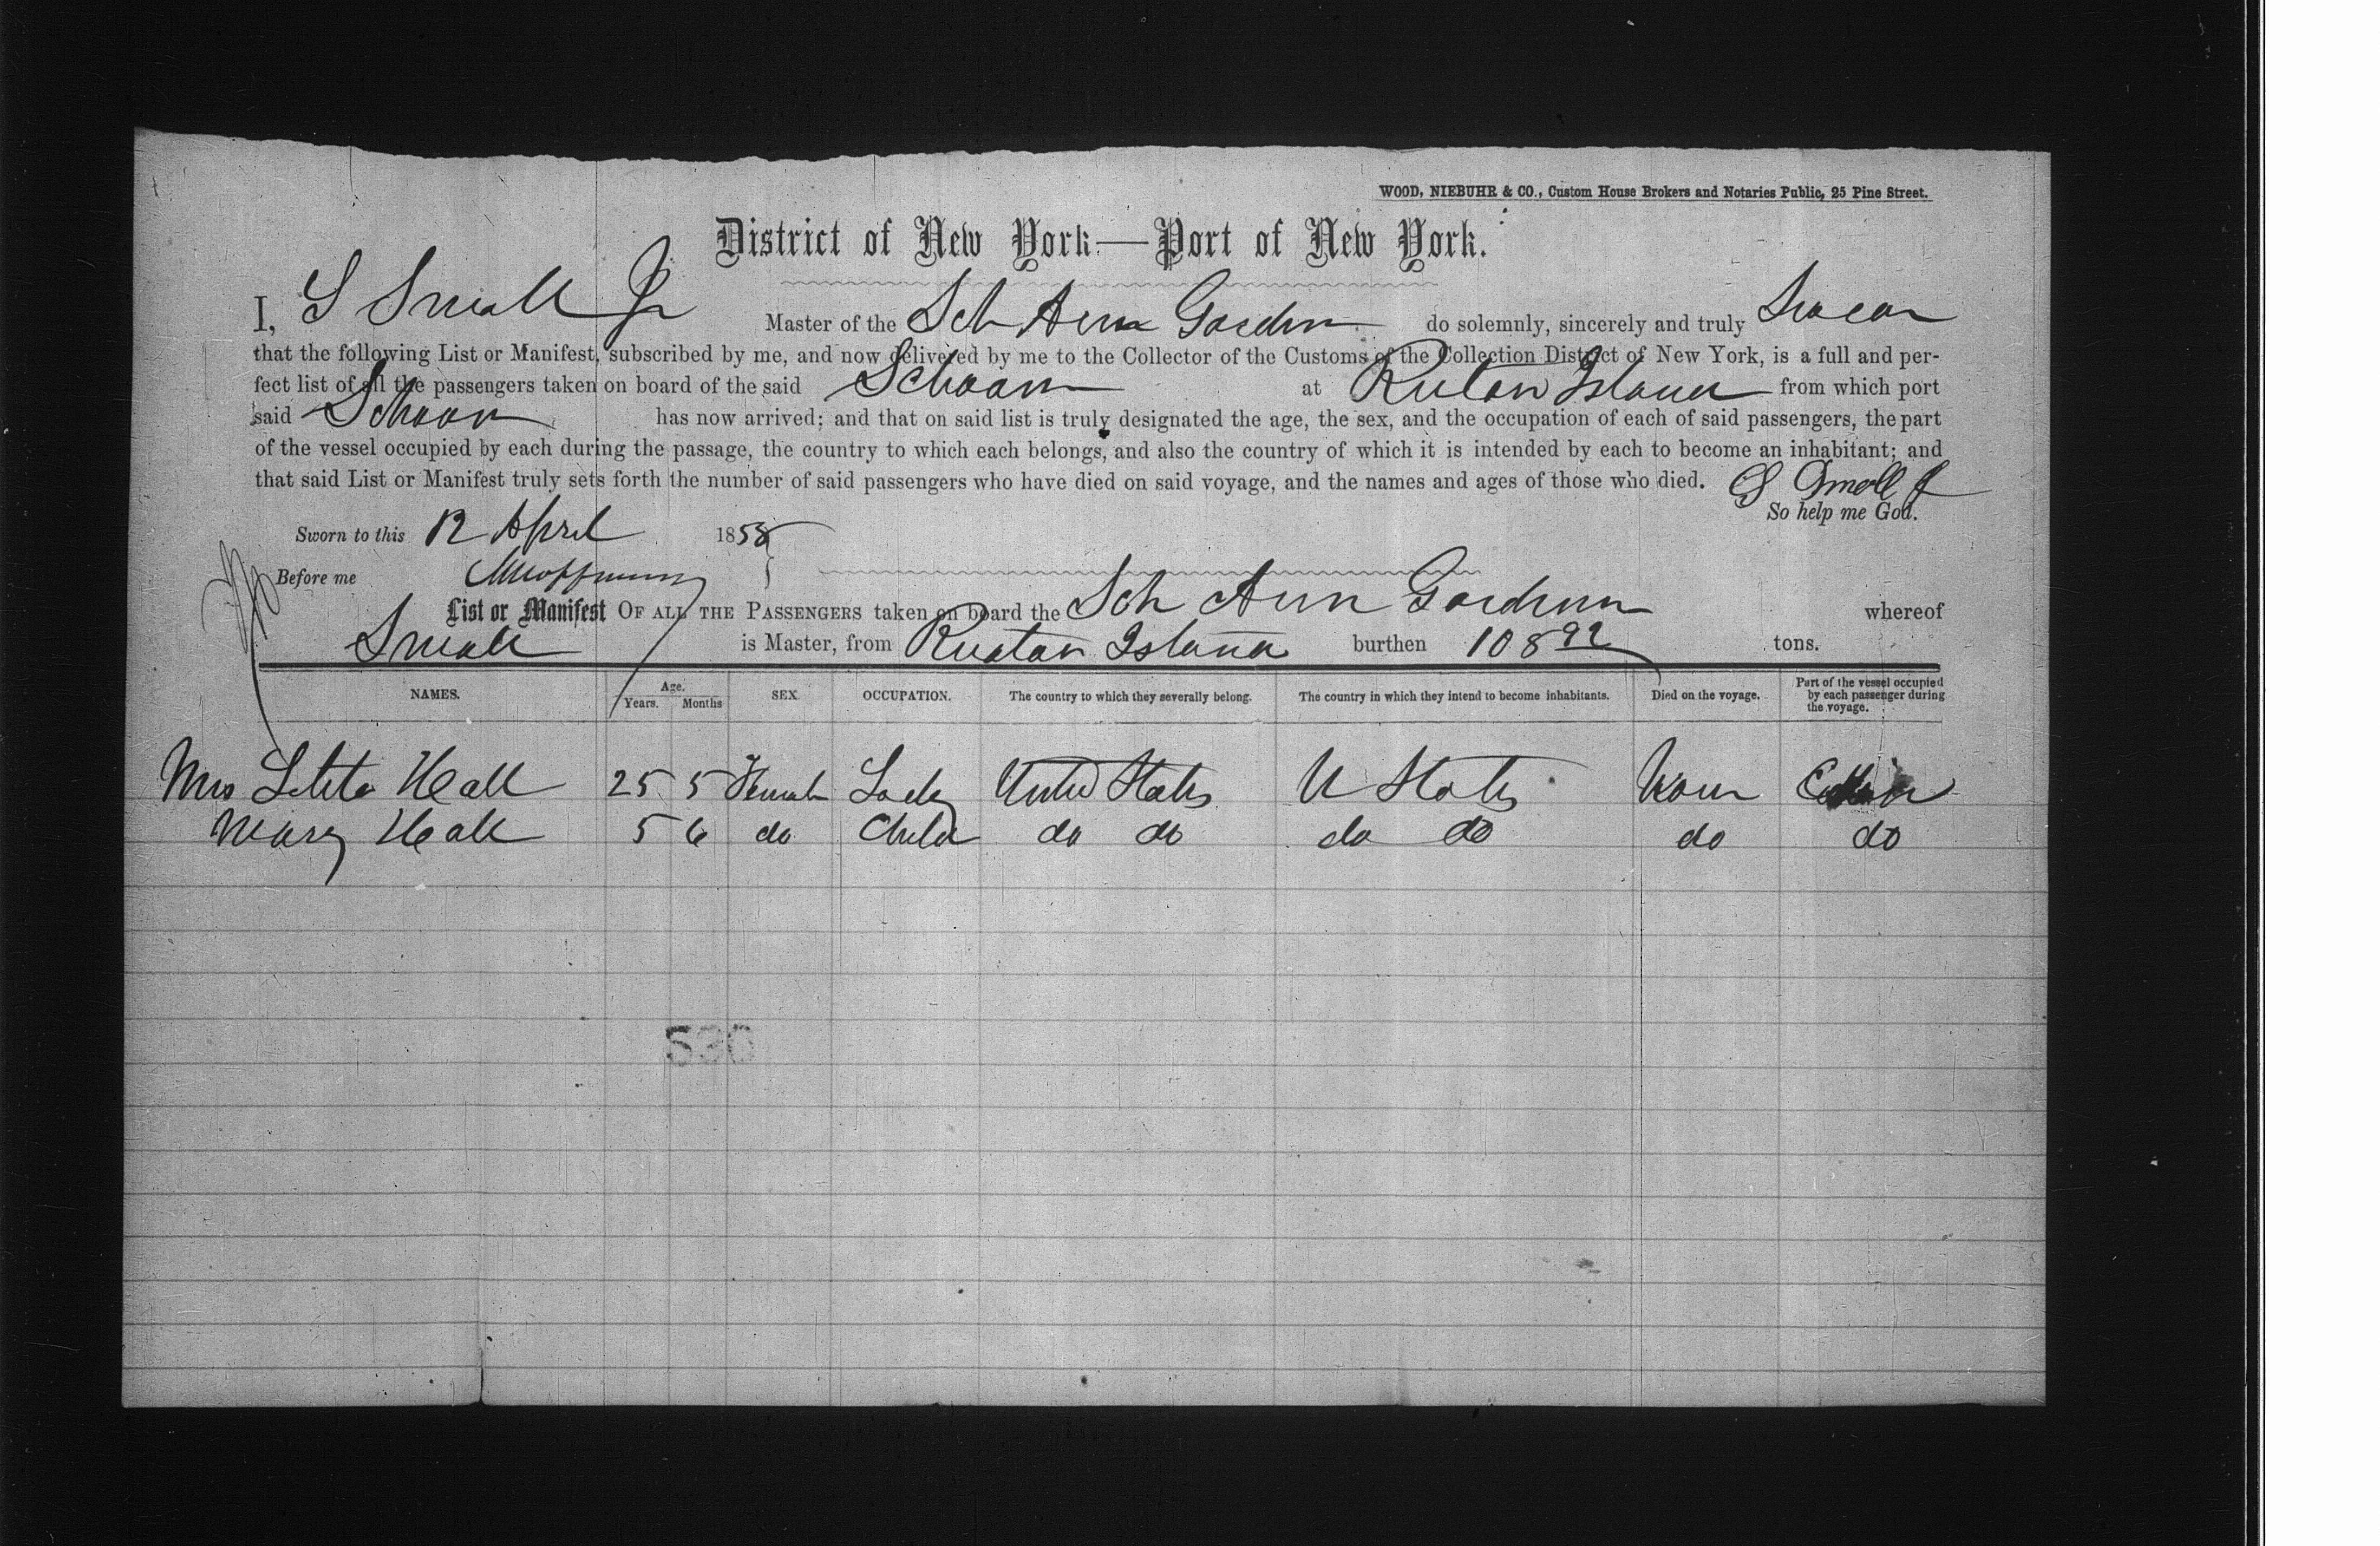 WOOD, NIEBUHR & CO., Custom House Brokers and Notaries Public, 25 Pine Street.
District of New York—Port of New York.
I, S Small Jr Master of the Sch Ann Gardner do solemnly, sincerely and truly Swear
that the following List or Manifest, subscribed by me, and now delivered by me to the Collector of the Customs of the Collection District of New York, is a full and per-
fect list of all the passengers taken on board of the said Schoon at Ruton Island from which port
said Schoon has now arrived; and that on said list is truly designated the age, the sex, and the occupation of each of said passengers, the part
of the vessel occupied by each during the passage, the country to which each belongs, and also the country of which it is intended by each to become an inhabitant; and
that said List or Manifest truly sets forth the number of said passengers who have died on said voyage, and the names and ages of those who died. S Small Jr
So help me God.
Sworn to this 12 April 1858
Before me
List or Manifest OF ALL THE PASSENGERS taken on board the Sch Ann Gardner whereof
Small is Master, from Ruatan Island burthen 108 92 tons.
NAMES. Age. Years. Months SEX. OCCUPATION. The country to which they severally belong. The country in which they intend to become inhabitants. Died on the voyage. Part of the vessel occupied by each passenger during the voyage.
Mrs Hall 25 5 Female Lady United States U States None
Mary Hall 5 6 do Child do do do do do do
530